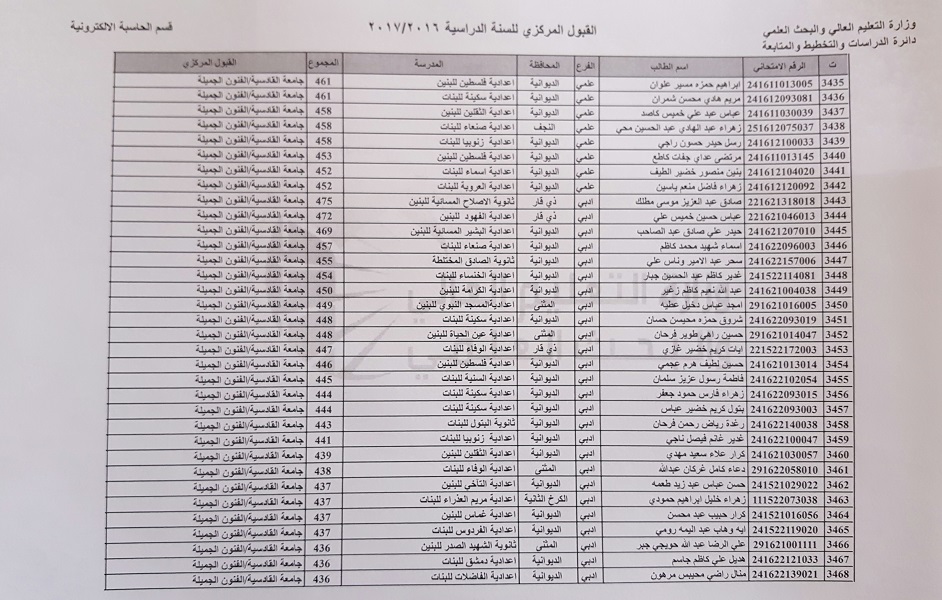 وزارة التعليم العالي والبحث العلمي
دائرة الدراسات والتخطيط والمتابعة
القبول المركزي للسنة الدراسية ٢٠١٧/٢٠١٦
قسم الحاسبة الالكترونية
ت الرقم الامتحاني اسم الطالب الفرع المحافظة المدرسة المجموع القبول المركزي
3435 241611013005 ابراهيم حمزه مسير علوان علمي الديوانية اعدادية فلسطين للبنين 461 جامعة القادسية/الفنون الجميلة
3436 241612093081 مريم هادي محسن شمران علمي الديوانية اعدادية سكينة للبنات 461 جامعة القادسية/الفنون الجميلة
3437 241611030039 عباس عبد علي خميس كاصد علمي الديوانية اعدادية الثقلين للبنين 458 جامعة القادسية/الفنون الجميلة
3438 251612075037 زهراء عبد الهادي عبد الحسين محي علمي النجف اعدادية صنعاء للبنات 458 جامعة القادسية/الفنون الجميلة
3439 241612100033 رسل حيدر حسون راجي علمي الديوانية اعدادية زنوبيا للبنات 458 جامعة القادسية/الفنون الجميلة
3440 241611013145 مرتضى عداي جفات كاطع علمي الديوانية اعدادية فلسطين للبنين 453 جامعة القادسية/الفنون الجميلة
3441 241612104020 بنين منصور خضير الطيف علمي الديوانية اعدادية اسماء للبنات 452 جامعة القادسية/الفنون الجميلة
3442 241612120092 زهراء فاضل منعم ياسين علمي الديوانية اعدادية العروبة للبنات 452 جامعة القادسية/الفنون الجميلة
3443 221621318018 صادق عبد العزيز موسى مطلك ادبي ذي قار ثانوية الاصلاح المسائية للبنين 475 جامعة القادسية/الفنون الجميلة
3444 221621046013 عباس حسين خميس علي ادبي ذي قار اعدادية الفهود للبنين 472 جامعة القادسية/الفنون الجميلة
3445 241621207010 حيدر علي صادق عبد الصاحب ادبي الديوانية اعدادية البشير المسائية للبنين 469 جامعة القادسية/الفنون الجميلة
3446 241622096003 اسماء شهيد محمد كاظم ادبي الديوانية اعدادية صنعاء للبنات 457 جامعة القادسية/الفنون الجميلة
3447 241622157006 سحر عبد الامير وناس علي ادبي الديوانية ثانوية الصادق المختلطة 455 جامعة القادسية/الفنون الجميلة
3448 241522114081 غدير كاظم عبد الحسين جبار ادبي الديوانية اعدادية الخنساء للبنات 454 جامعة القادسية/الفنون الجميلة
3449 241621004038 عبد الله نعيم كاظم زغير ادبي الديوانية اعدادية الكرامة للبنين 450 جامعة القادسية/الفنون الجميلة
3450 291621016005 امجد عباس دخيل عطيه ادبي المثنى اعداديةالمسجد النبوي للبنين 449 جامعة القادسية/الفنون الجميلة
3451 241622093019 شروق حمزه محيسن حسان ادبي الديوانية اعدادية سكينة للبنات 448 جامعة القادسية/الفنون الجميلة
3452 291621014047 حسين راهي طوير فرحان ادبي المثنى اعدادية عين الحياة للبنين 448 جامعة القادسية/الفنون الجميلة
3453 221522172003 ايات كريم خضير غازي ادبي ذي قار اعدادية الوفاء للبنات 447 جامعة القادسية/الفنون الجميلة
3454 241621013014 حسين لطيف هرم عجمي ادبي الديوانية اعدادية فلسطين للبنين 446 جامعة القادسية/الفنون الجميلة
3455 241622102054 فاطمة رسول عزيز سلمان ادبي الديوانية اعدادية السنية للبنات 445 جامعة القادسية/الفنون الجميلة
3456 241622093015 زهراء فارس حمود جعفر ادبي الديوانية اعدادية سكينة للبنات 444 جامعة القادسية/الفنون الجميلة
3457 241622093003 بتول كريم خضير عباس ادبي الديوانية اعدادية سكينة للبنات 444 جامعة القادسية/الفنون الجميلة
3458 241622140038 رغدة رياض رحمن فرحان ادبي الديوانية ثانوية البتول للبنات 443 جامعة القادسية/الفنون الجميلة
3459 241622100047 غدير غانم فيصل ناجي ادبي الديوانية اعدادية زنوبيا للبنات 441 جامعة القادسية/الفنون الجميلة
3460 241621030057 كرار علاء سعيد مهدي ادبي الديوانية اعدادية الثقلين للبنين 439 جامعة القادسية/الفنون الجميلة
3461 291622058010 دعاء كامل غركان عبدالله ادبي المثنى اعدادية الوفاء للبنات 438 جامعة القادسية/الفنون الجميلة
3462 241521029022 حسن عباس عبد زيد طعمه ادبي الديوانية اعدادية التأخي للبنين 437 جامعة القادسية/الفنون الجميلة
3463 111522073038 زهراء خليل ابراهيم حمودي ادبي الكرخ الثانية اعدادية مريم العذراء للبنات 437 جامعة القادسية/الفنون الجميلة
3464 241521016056 كرار حبيب عبد محسن ادبي الديوانية اعدادية غماس للبنين 437 جامعة القادسية/الفنون الجميلة
3465 241522119020 ايه وهاب عبد اليمه رومي ادبي الديوانية اعدادية الفردوس للبنات 437 جامعة القادسية/الفنون الجميلة
3466 291621001111 علي الرضا عبد الله حويجي جبر ادبي المثنى ثانوية الشهيد الصدر للبنين 436 جامعة القادسية/الفنون الجميلة
3467 241622121033 هديل علي كاظم جاسم ادبي الديوانية اعدادية دمشق للبنات 436 جامعة القادسية/الفنون الجميلة
3468 241622139021 منال راضي محيبس مرهون ادبي الديوانية اعدادية الفاضلات للبنات 436 جامعة القادسية/الفنون الجميلة